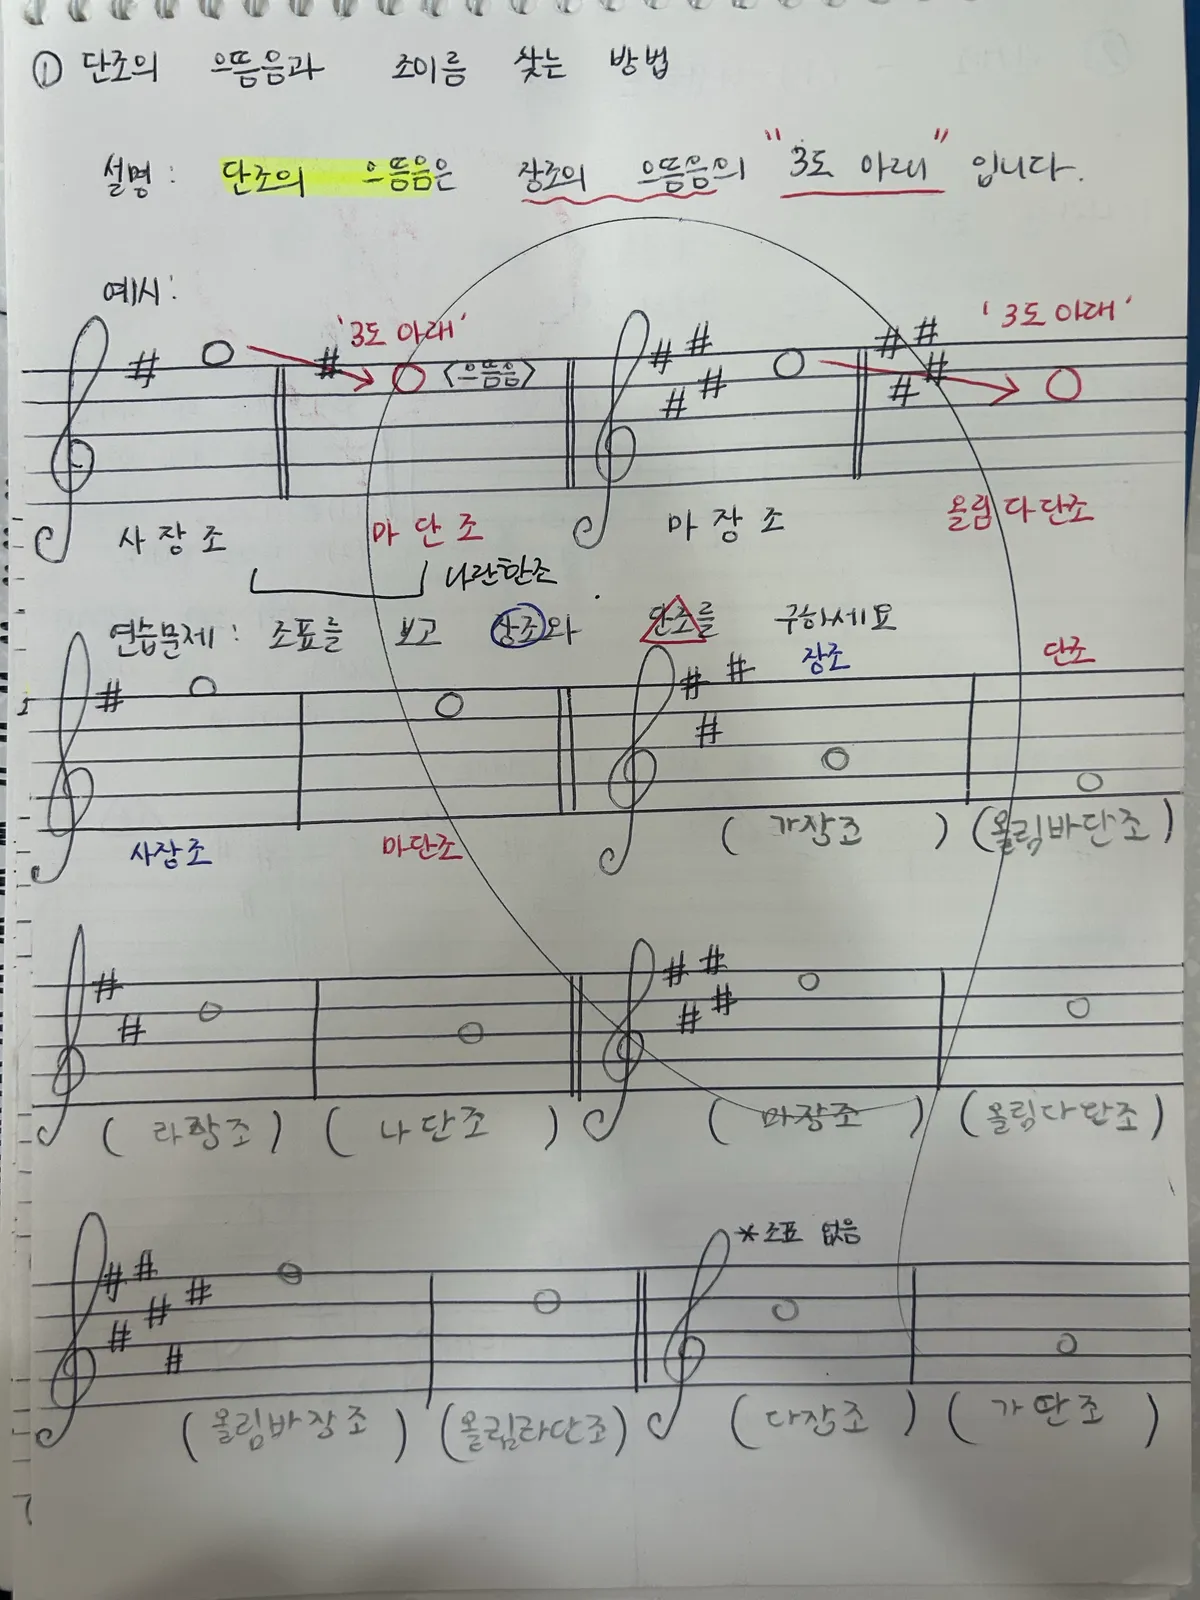 ① 단조의 으뜸음과 조이름 찾는 방법
설명: 단조의 으뜸음은 장조의 으뜸음의 "3도 아래" 입니다.
예시:
'3도 아래' <으뜸음> '3도 아래'
사장조 마단조 마장조 올림다단조
나란한조
연습문제: 조표를 보고 장조와 단조를 구하세요
장조 단조
사장조 마단조 (가장조) (올림바단조)
(라장조) (나단조) (마장조) (올림다단조)
*조표 없음
(올림바장조) (올림라단조) (다장조) (가단조)